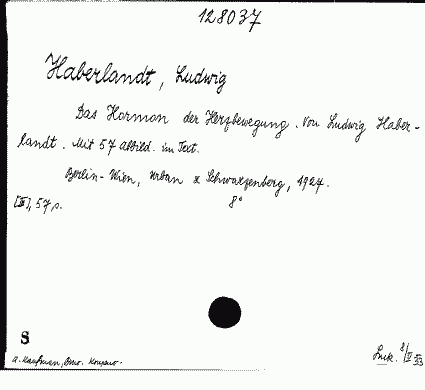 128037
Haberlandt, Ludwig
Das Hormon der Herzbewegung. Von Ludwig Haber-
landt. Mit 57 Abbild. im Text.
Berlin-Wien, Urban & Schwarzenberg, 1927.
[III], 57 s. 8°
S
a. Kaufman,